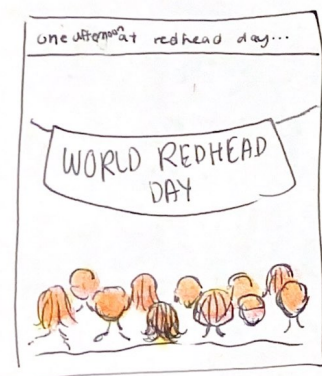 one afternoon at redhead day...
WORLD REDHEAD
DAY